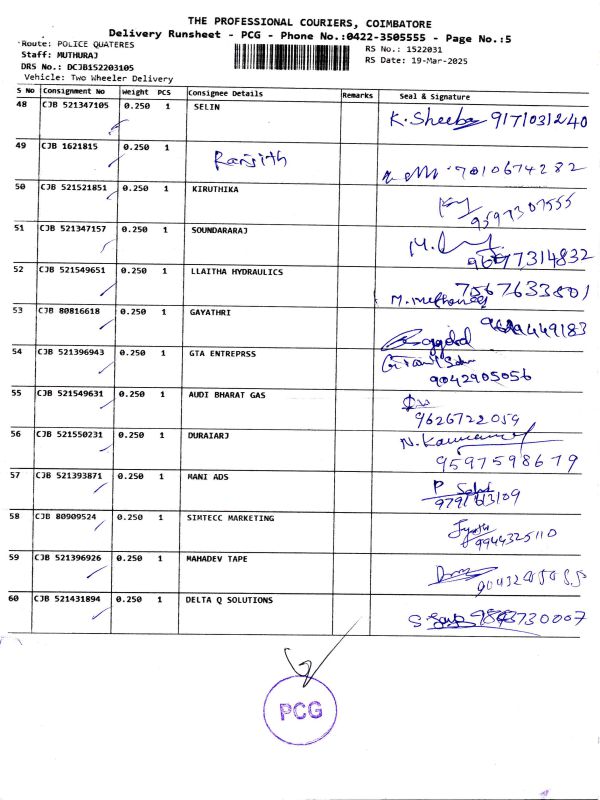 THE PROFESSIONAL COURIERS, COIMBATORE
Delivery Runsheet - PCG - Phone No.:0422-3505555 - Page No.:5
Route: POLICE QUATERES RS No.: 1522031
Staff: MUTHURAJ RS Date: 19-Mar-2025
DRS No.: DCJB152203105
Vehicle: Two Wheeler Delivery
S No Consignment No Weight PCS Consignee Details Remarks Seal & Signature
48 CJB 521347105 0.250 1 SELIN K. Sheeba 9171031240
49 CJB 1621815 0.250 1 Ranjith 7010674282
50 CJB 521521851 0.250 1 KIRUTHIKA 9597307555
51 CJB 521347157 0.250 1 SOUNDARARAJ
52 CJB 521549651 0.250 1 LLAITHA HYDRAULICS 7567633801
53 CJB 80816618 0.250 1 GAYATHRI
54 CJB 521396943 0.250 1 GTA ENTREPRSS 9042905056
55 CJB 521549631 0.250 1 AUDI BHARAT GAS 9626722059
56 CJB 521550231 0.250 1 DURAIARJ 9597598679
57 CJB 521393871 0.250 1 MANI ADS
58 CJB 80909524 0.250 1 SIMTECC MARKETING 9944325110
59 CJB 521396926 0.250 1 MAHADEV TAPE
60 CJB 521431894 0.250 1 DELTA Q SOLUTIONS
PCG